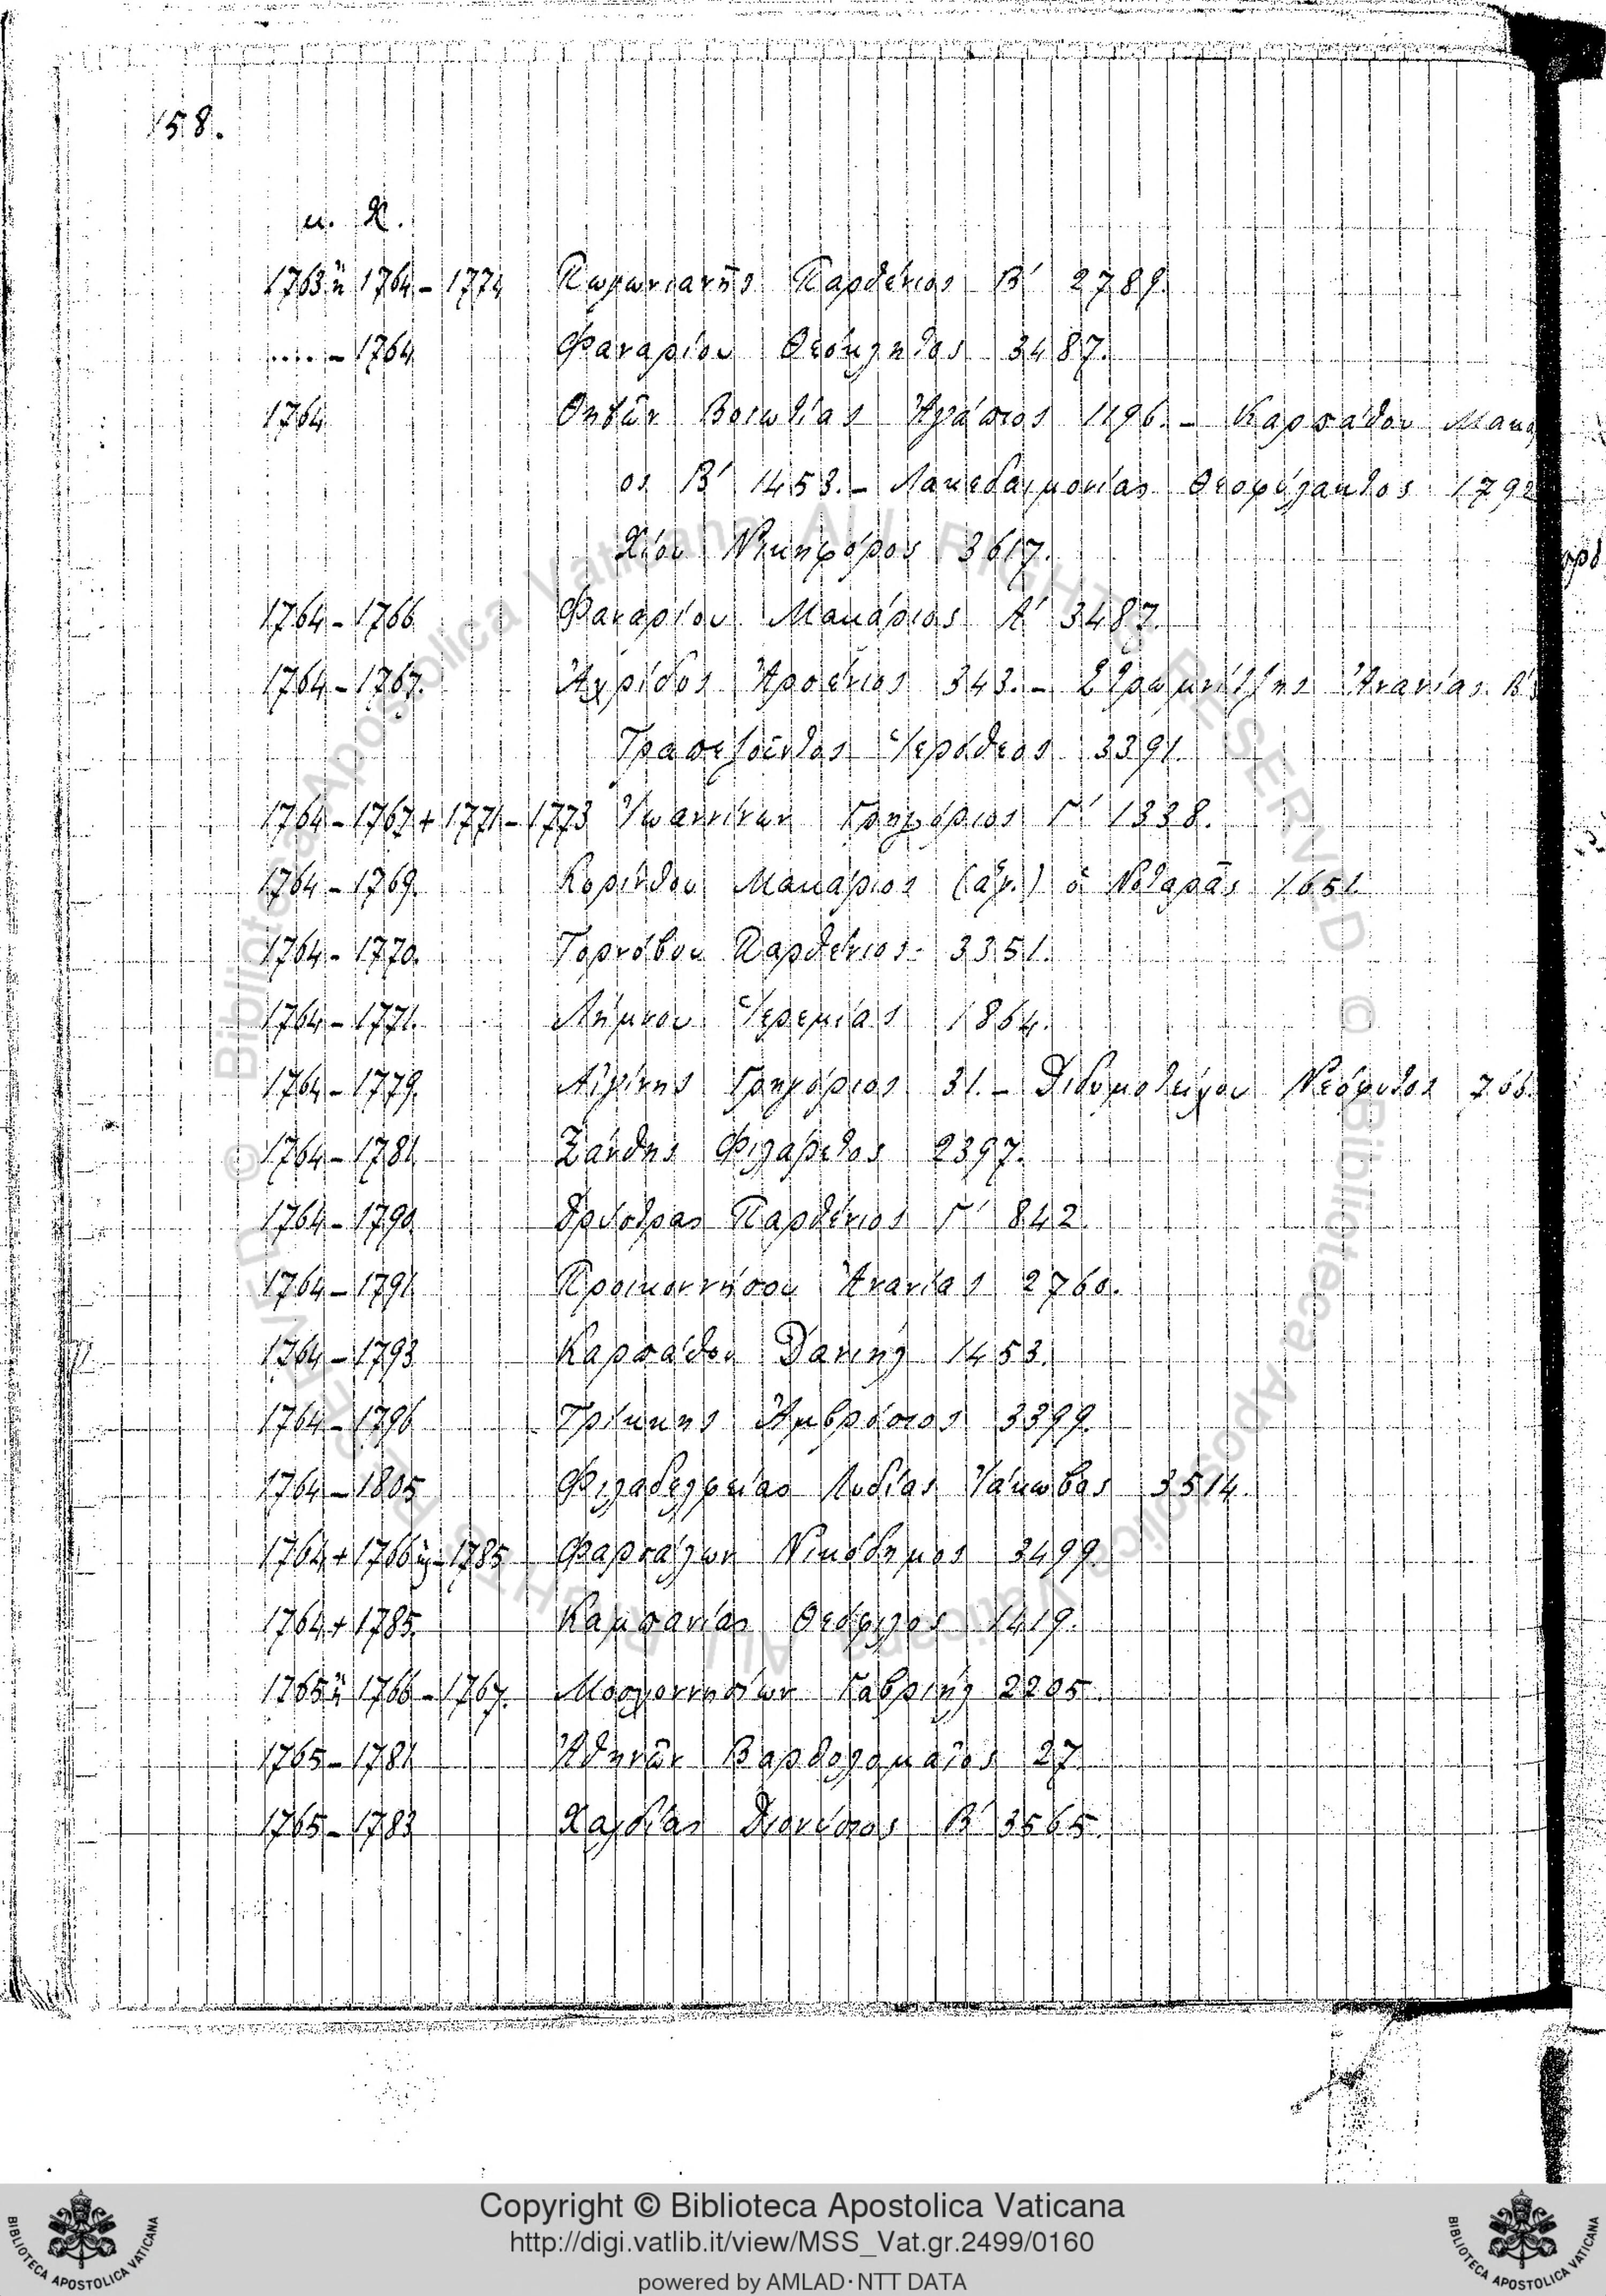 158.
μ. Χ.
1763 ἢ 1764 - 1774 Πωγωνιανῆς Παρθένιος Β' 2789.
..... - 1764 Φαναρίου Θεόκλητος 3487.
1764 Θηβῶν Βοιωτίας Ἀγάπιος 1196. - Καρπάθου Μακα
ος Β' 1453. - Λακεδαιμονίας Θεοφύλακτος 1792
Χίου Νικηφόρος 3617.
1764 - 1766 Φαναρίου Μακάριος Α' 3487.
1764 - 1767. Ἀχρίδος Ἀρσένιος 343. - Στρωμνίτζης Ἀνανίας Β'
Τραπεζοῦντος Ἱερόθεος 3391.
1764 - 1767 + 1771 - 1773 Ἰωαννίνων Γρηγόριος Γ' 1338.
1764 - 1769. Κορίνθου Μακάριος (ἅγ.) ὁ Νοταρᾶς 1651.
1764 - 1770. Τορνόβου Παρθένιος 3351.
1764 - 1771. Λήμνου Ἱερεμίας 1864.
1764 - 1779. Αἰγίνης Γρηγόριος 31. - Διδυμοτείχου Νεόφυτος 766.
1764 - 1781 Ξάνθης Φιλάρετος 2397.
1764 - 1790 Δρύστρας Παρθένιος Γ' 842
1764 - 1791 Προικοννήσου Ἀνανίας 2760.
1764 - 1793 Καρπάθου Δανιὴλ 1453.
1764 - 1796 Τρίκκης Ἀμβρόσιος 3399.
1764 - 1805 Φιλαδελφείας Λυδίας Ἰάκωβος 3514.
1764 + 1766 ἢ - 1785 Φαρσάλων Νικόδημος 3499.
1764 + 1785. Καμπανίας Θεόφιλος 1419.
1765 ἢ 1766 - 1767. Μοσχονησίων Γαβριὴλ 2205.
1765 - 1781 Ἀθηνῶν Βαρθολομαῖος 27
1765 - 1783 Χαλδίας Διονύσιος Β' 3565.
Copyright © Biblioteca Apostolica Vaticana
http://digi.vatlib.it/view/MSS_Vat.gr.2499/0160
powered by AMLAD·NTT DATA
BIBLIOTECA APOSTOLICA VATICANA
BIBLIOTECA APOSTOLICA VATICANA